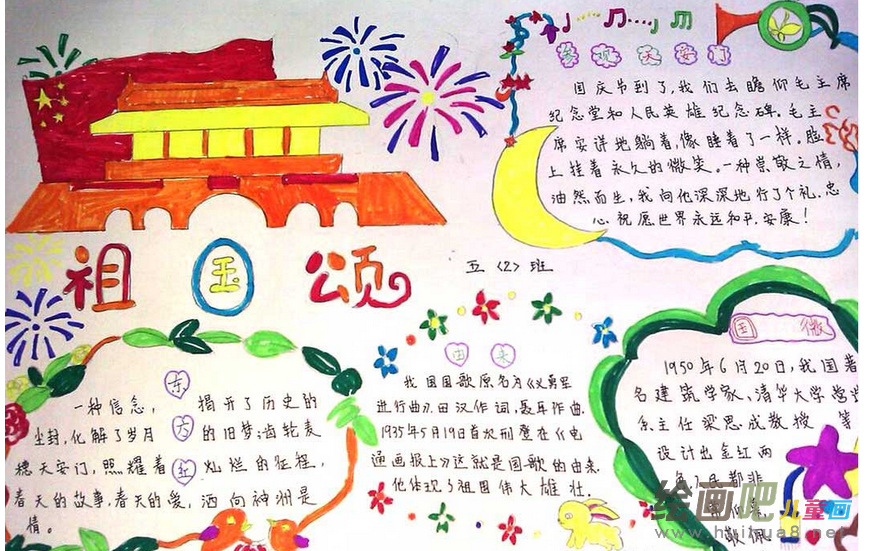 祖国颂
五〈2〉班
参观天安门
国庆节到了,我们去瞻仰毛主席
纪念堂和人民英雄纪念碑。毛主
席安详地躺着,像睡着了一样。脸
上挂着永久的微笑。一种崇敬之情,
油然而生,我向他深深地行了个礼,忠
心祝愿世界永远和平,安康!
东方红
一种信念, 揭开了历史的
尘封,化解了岁月 的旧梦;齿轮表
穗天安门,照耀着 灿烂的征程,
春天的故事,春天的爱, 洒向神洲是
情。
由来
我国国歌原名为《义勇军
进行曲》,田汉作词,聂耳作曲.
1935年5月19日首次刊登在《电
通画报上》这就是国歌的由来.
他体现了祖国伟大雄壮.
国 徽
1950年6月20日,我国著
名建筑学家、清华大学营学
系主任梁思成教授 等
设计出金红两
都非
敬佩
绘画吧儿童画
www.huihua8.net